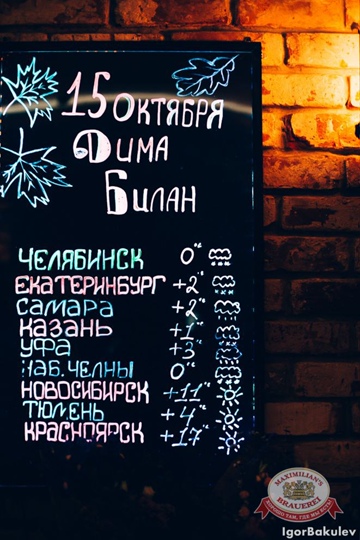 15 ОКТЯБРЯ
ДИМА
БИЛАН
ЧЕЛЯБИНСК 0°
ЕКАТЕРИНБУРГ +2°
САМАРА +2°
КАЗАНЬ +1°
УФА +3°
НАБ.ЧЕЛНЫ 0°
НОВОСИБИРСК +11°
ТЮМЕНЬ +4°
КРАСНОЯРСК +17°
MAXIMILIAN'S
BRAUEREI
ХОРОШО ТАМ, ГДЕ МЫ ЕСТЬ!
IgorBakulev